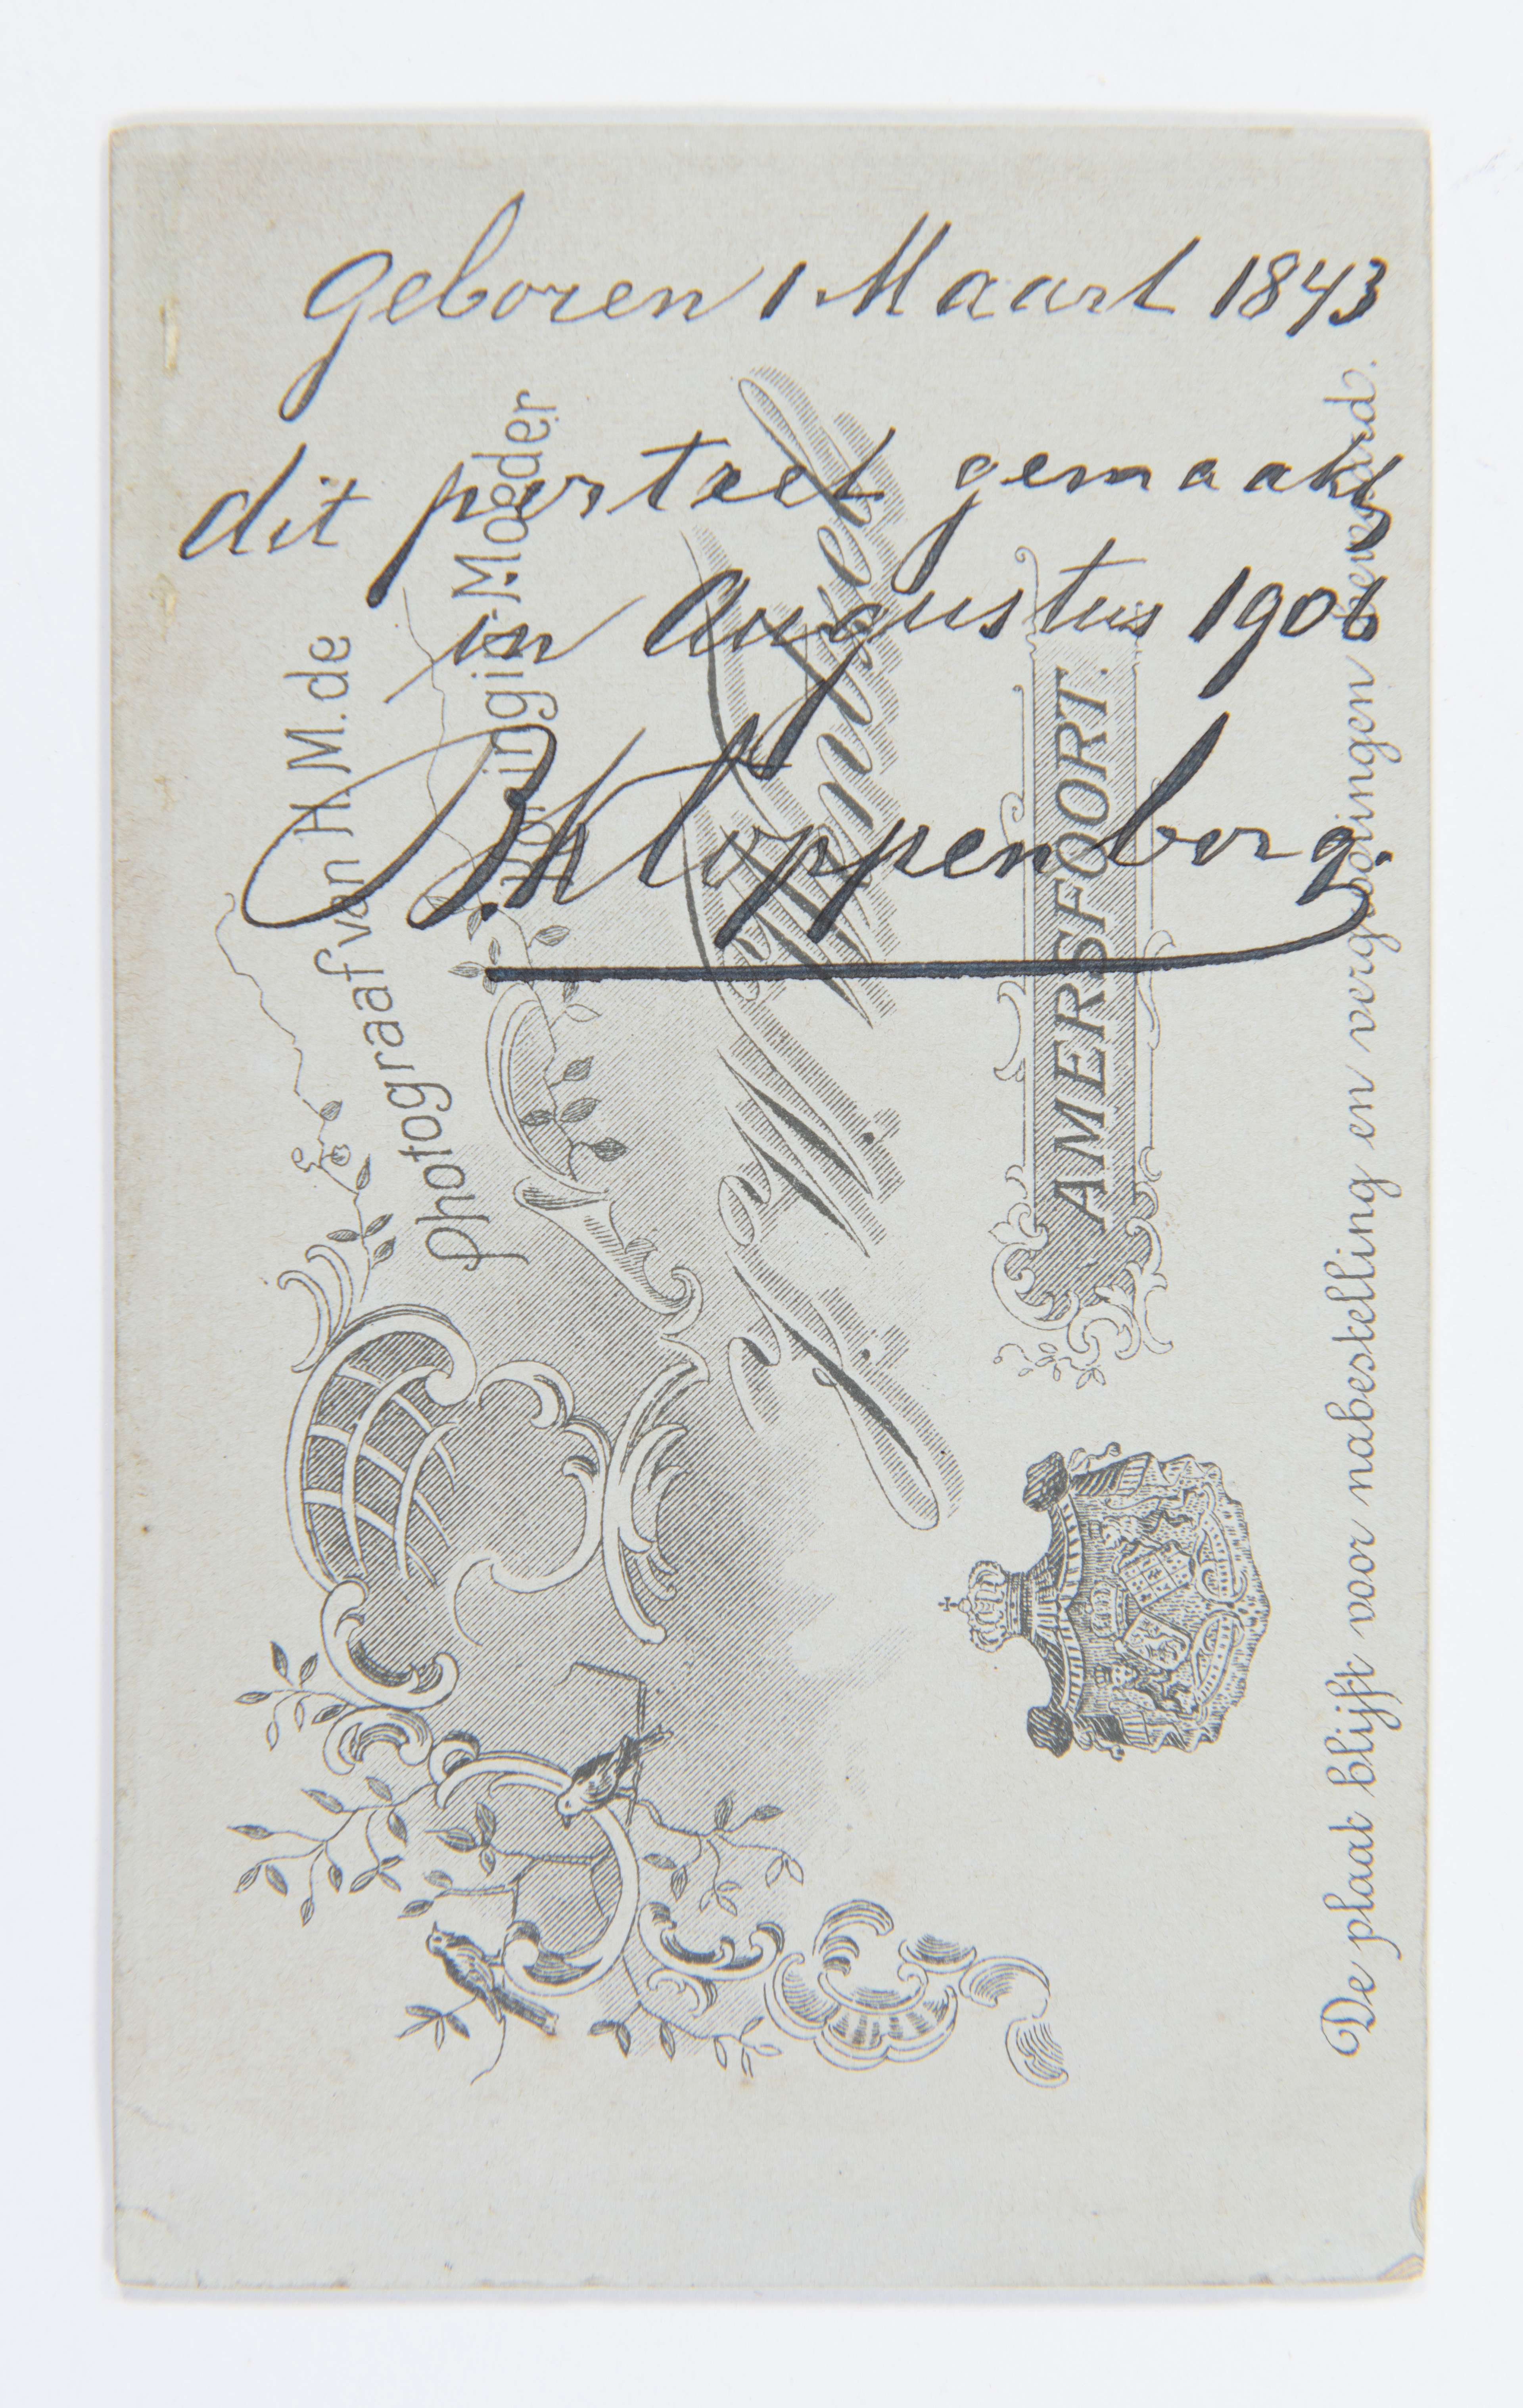 Geboren 1 Maart 1843
dit portret gemaakt
in Augustus 1906
B. Kloppenborg.
Photograaf van H.M. de
Koningin-Moeder
J. W. Wentzel
AMERSFOORT.
De plaat blijft voor nabestelling en vergrootingen bewaard.